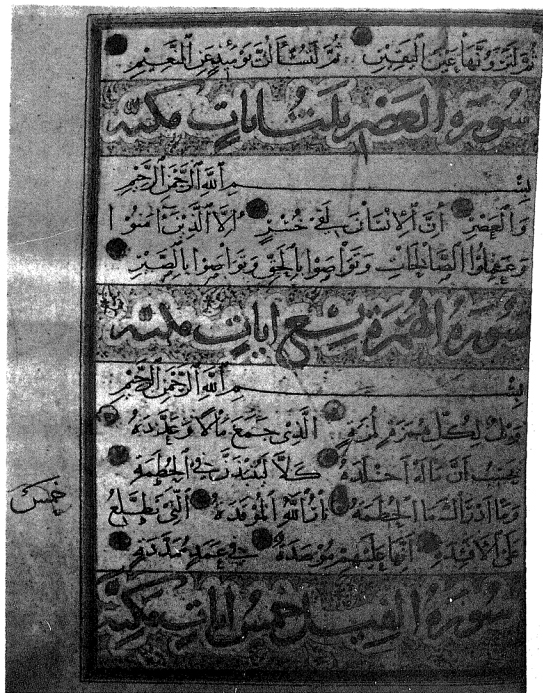 ثُمَّ لَتَرَوُنَّهَا عَيْنَ الْيَقِينِ ثُمَّ لَتُسْأَلُنَّ يَوْمَئِذٍ عَنِ النَّعِيمِ
سورة العصر ثلث ايات مكية
بِسْمِ اللَّهِ الرَّحْمَنِ الرَّحِيمِ
وَالْعَصْرِ إِنَّ الْإِنْسَانَ لَفِي خُسْرٍ إِلَّا الَّذِينَ آمَنُوا
وَعَمِلُوا الصَّالِحَاتِ وَتَوَاصَوْا بِالْحَقِّ وَتَوَاصَوْا بِالصَّبْرِ
سورة الهمزة تسع ايات مكية
بِسْمِ اللَّهِ الرَّحْمَنِ الرَّحِيمِ
وَيْلٌ لِكُلِّ هُمَزَةٍ لُمَزَةٍ الَّذِي جَمَعَ مَالًا وَعَدَّدَهُ
يَحْسَبُ أَنَّ مَالَهُ أَخْلَدَهُ كَلَّا لَيُنْبَذَنَّ فِي الْحُطَمَةِ
وَمَا أَدْرَاكَ مَا الْحُطَمَةُ نَارُ اللَّهِ الْمُوقَدَةُ الَّتِي تَطَّلِعُ
عَلَى الْأَفْئِدَةِ إِنَّهَا عَلَيْهِمْ مُؤْصَدَةٌ فِي عَمَدٍ مُمَدَّدَةٍ
سورة الفيل خمس ايات مكية
خمس